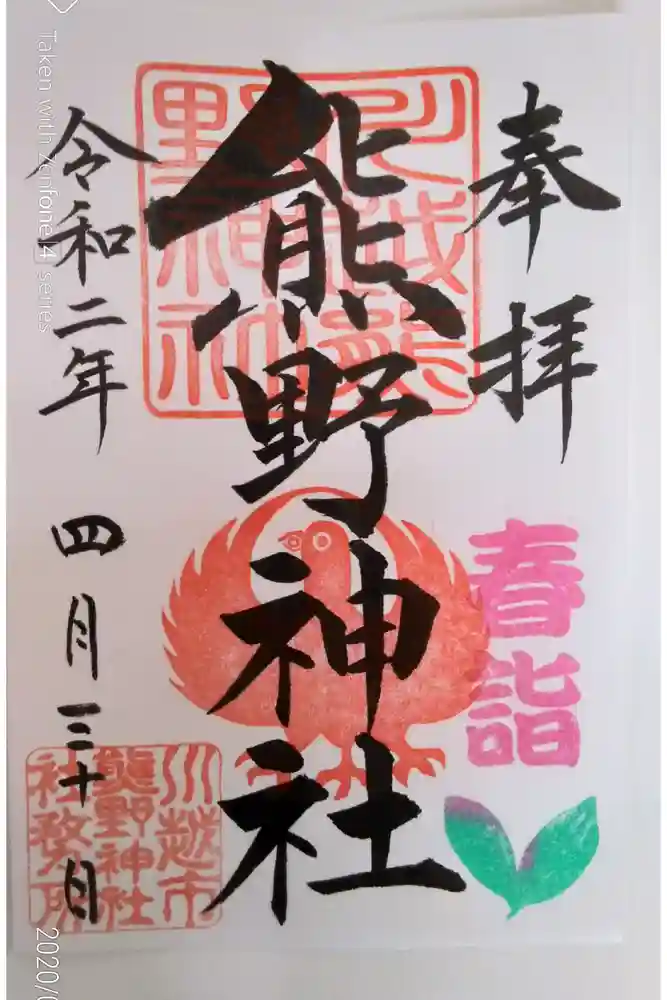 奉拝
春詣
川越熊野神社
熊野神社
令和二年 四月三十日
川越市
熊野神社
社務所
Taken with zenfone 4 series
2020/0